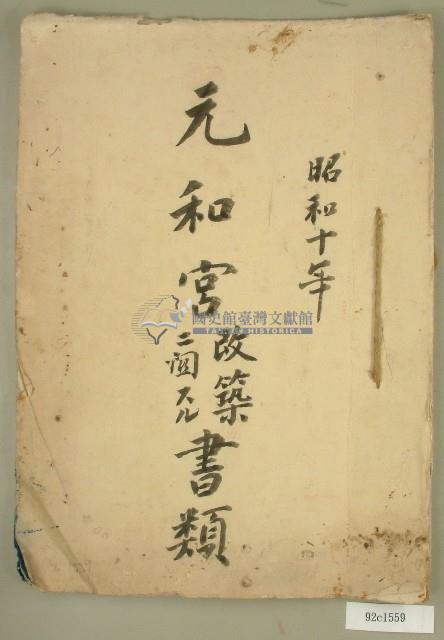 昭和十年
元和宮改築ニ関スル書類
國史館臺灣文獻館
TAIWAN HISTORICA
92c1559